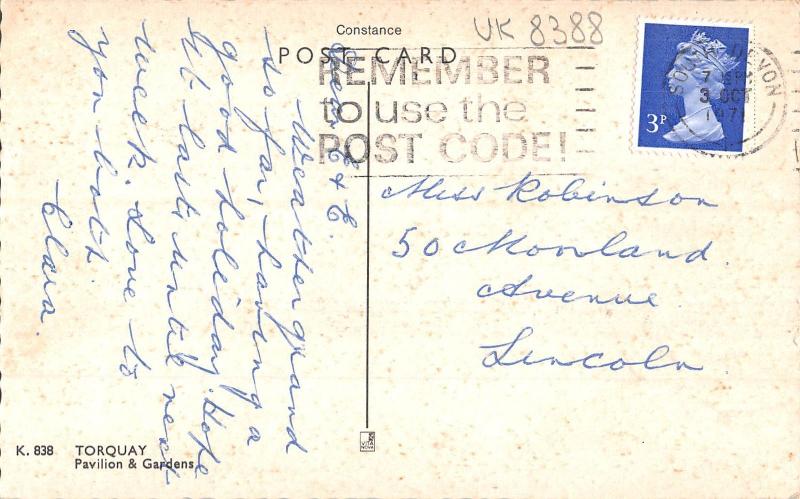 Constance
UK 8388
POST CARD
REMEMBER
to use the
POST CODE!
SOUTH DEVON
3 OCT
197
3P
Dear E & E.
Weather grand
so far, having a
good holiday. Hope
it lasts until next
week. Love to
you both
Clara.
Miss Robinson
50 Moorland
Avenue.
Lincoln.
K. 838 TORQUAY
Pavilion & Gardens